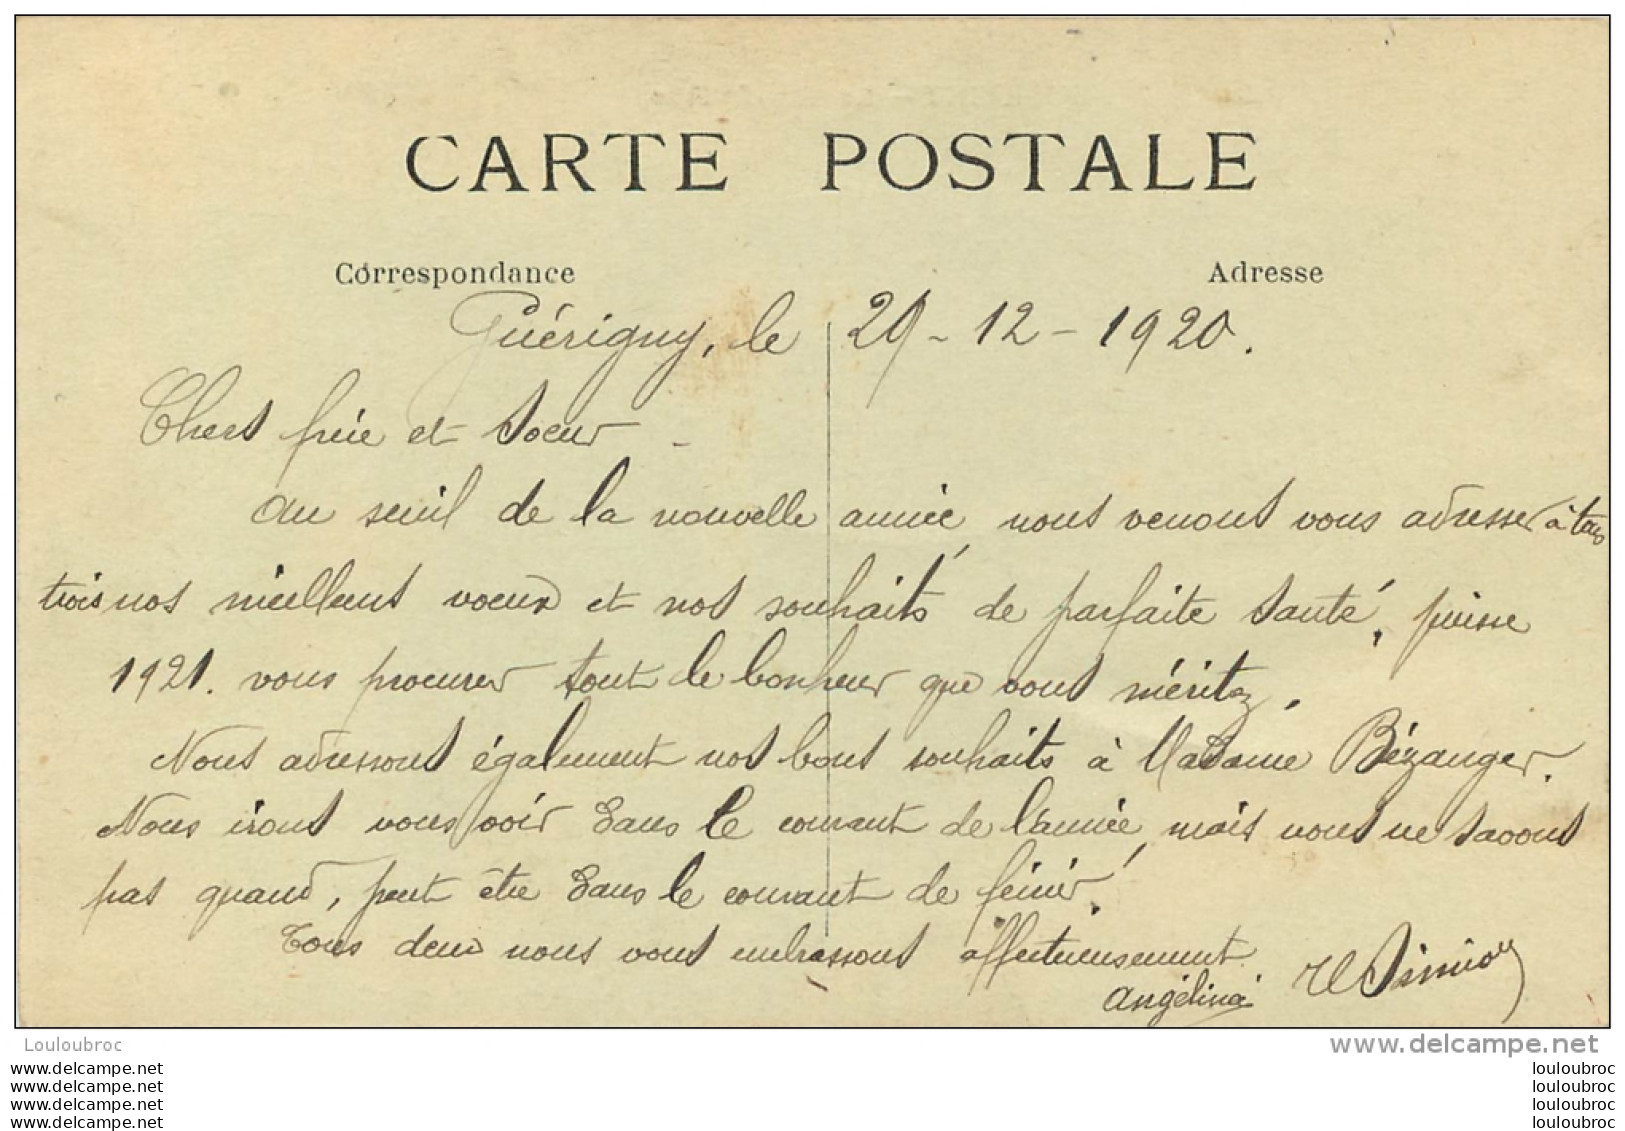 CARTE POSTALE
Correspondance Adresse
Guérigny, le 29-12-1920.
Chers frère et Soeur -
au seuil de la nouvelle année, nous venons vous adresser à tous
trois nos meilleurs voeux et nos souhaits de parfaite santé, puisse
1921. vous procurer tout le bonheur que vous méritez.
Nous adressons également nos bons souhaits à Madame Bézanger.
Nous irons vous voir dans le courant de l'année, mais nous ne savons
pas quand, peut être dans le courant de
Tous deux nous vous embrassons affectueusement
Angélina
Louloubroc
www.delcampe.net
www.delcampe.net louloubroc
www.delcampe.net louloubroc
www.delcampe.net louloubroc
www.delcampe.net louloubroc